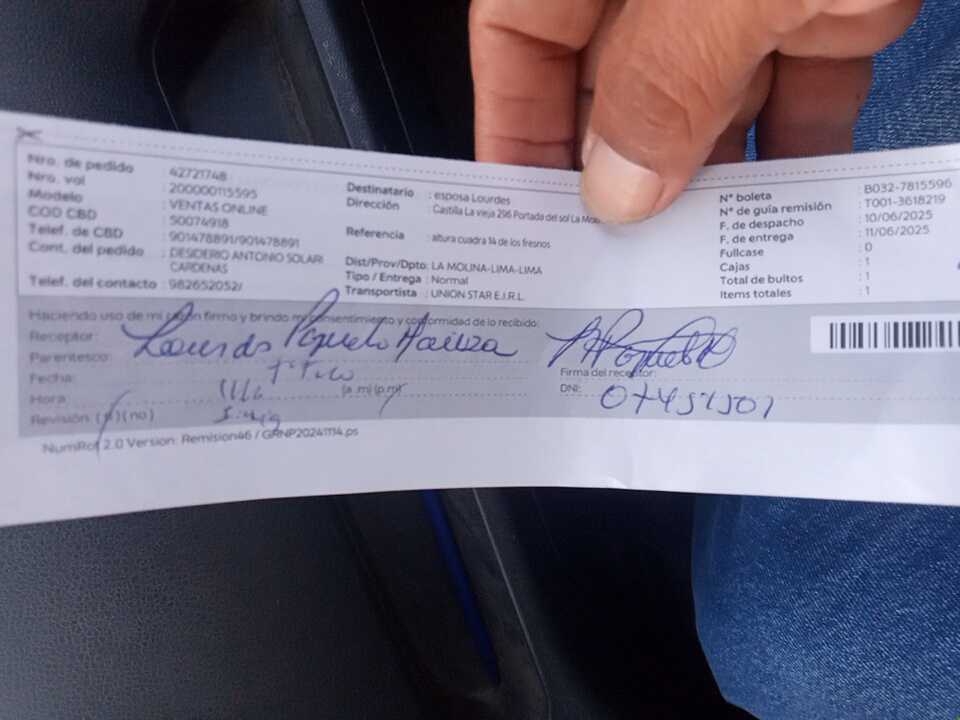 Nro. de pedido 42721748
Nro. vol : 200000115595
Modelo : VENTAS ONLINE
COD CBD : 50074918
Telef. de CBD : 901478891/901478891
Cont. del pedido : DESIDERIO ANTONIO SOLARI CARDENAS
Telef. del contacto : 982652052/
Destinatario : esposa Lourdes
Dirección : Castilla La vieja 296 Portada del sol La Mo
Referencia : altura cuadra 14 de los fresnos
Dist/Prov/Dpto: LA MOLINA-LIMA-LIMA
Tipo / Entrega : Normal
Transportista : UNION STAR E.I.R.L.
N° boleta : B032-7815596
N° de guía remisión : T001-3618219
F. de despacho : 10/06/2025
F. de entrega : 11/06/2025
Fullcase : 0
Cajas : 1
Total de bultos : 1
Items totales : 1
Haciendo uso de mi razón firmo y brindo mi consentimiento y conformidad de lo recibido:
Receptor: Lourdes
Parentesco:
Fecha: 11/6
Hora (a. m) (p. m)
Revisión: (si) (no)
Firma del receptor:
DNI:
NumRot 2.0 Version: Remision46 / GRNP20241114.ps